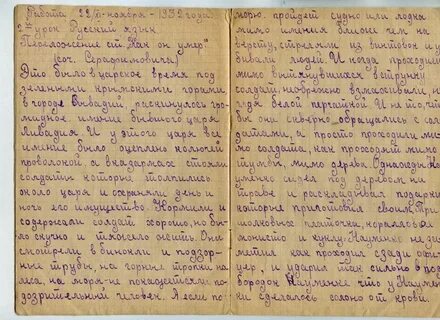 Работа 22/XI-ноября-1932 года.
2-й урок Русский язык
Переложение ст. "Как он умер"
(соч. Серафимовича)
Это было в царское время под
зелеными крымскими горами
в городе Ливадии, раскинулось гро-
мадное имение бывшего царя
Ливадия. И у этого царя все
имение было оцеплено колючей
проволокой, а в казармах стояли
солдаты которые толпились
около царя и охраняли день и
ночь его имущество. Кормили и
содержали солдат хорошо, но бы-
ло скучно и тяжело жить. Они
смотрели в бинокли и подзор-
ные трубы, на горные тропки на
леса, на море-не покажется ли по-
дозрительный человек. А если по
морю. пройдет судно или лодка
мимо имения ближе чем на
версту, стреляли из винтовок и у
бивали людей. И когда проходил
мимо вытянувшихся в струнку
солдат, небрежно взмахивали, не
глядя белой перчаткой. И не то что
бы они скверно обращались с сол-
датами, а просто проходили ми-
мо солдата, как проходили мимо
тумбы, мимо дерева. Однажды На-
уменко сидел под деревом на
траве и раскладывал подарки
которые приготовил своим. Три
шолковых платочка, кораллы
монисто и куклу. Науменко не за
метил как проходил сзади офи
цер, и ударил так сильно в под
бородок Науменке что у Наумен
ки сделалось солоно от крови.